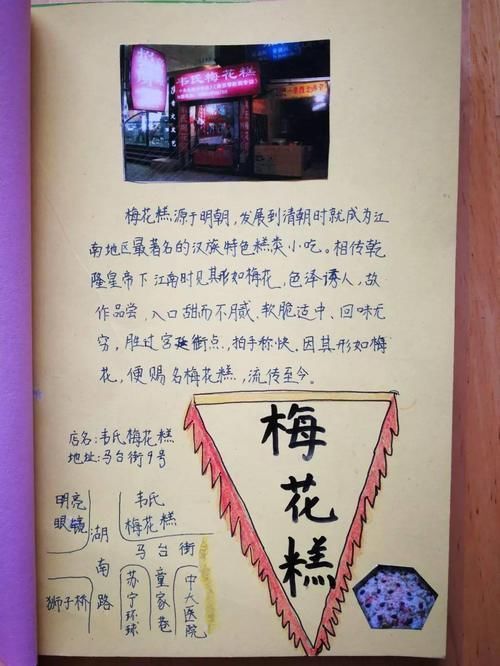 韦氏梅花糕
梅花糕源于明朝，发展到清朝时就成为江
南地区最著名的汉族特色糕类小吃。相传乾
隆皇帝下江南时见其形如梅花，色泽诱人，故
作品尝，入口甜而不腻、软脆适中、回味无
穷，胜过宫廷御点，拍手称快。因其形如梅
花，便赐名梅花糕，流传至今。
店名：韦氏梅花糕
地址：马台街9号
明亮
眼镜
湖南路
韦氏
梅花糕
马台街
狮子桥
苏宁环球
童家巷
中大医院
梅花糕